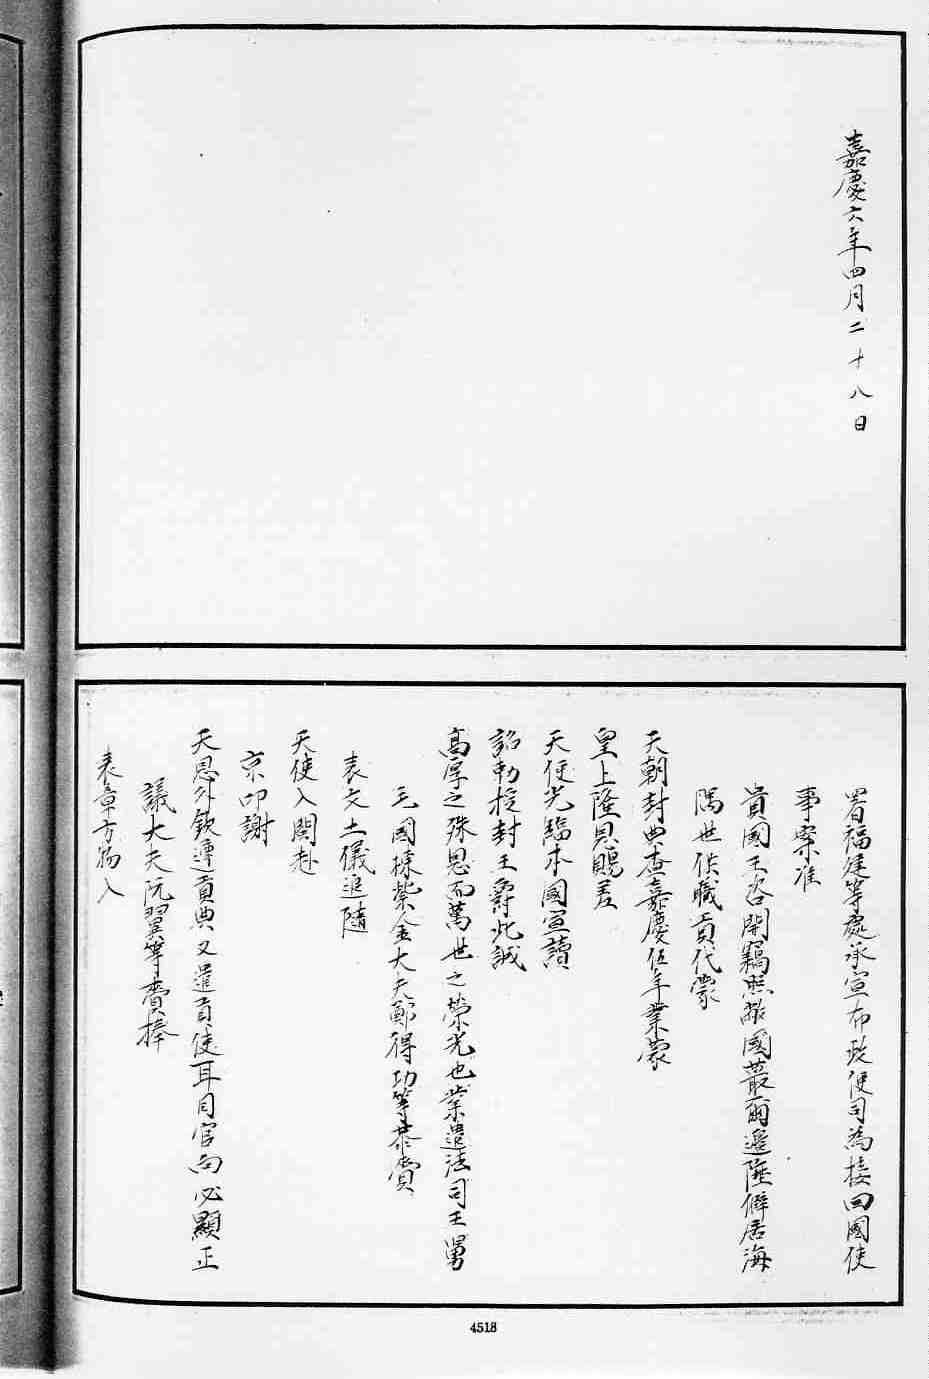 嘉慶六年四月二十八日
署福建等處承宣布政使司為接回國使
事案准
貴國王咨開竊照敝國蕞爾邊陲僻居海
隅世供職貢代蒙
天朝封典查嘉慶伍年業蒙
皇上隆恩賜差
天使光臨本國宣讀
詔勅授封王爵此誠
高厚之殊恩而萬世之榮光也業遣法司王舅
毛國棟紫金大夫鄭得功等恭齎
表文土儀追隨
天使入閩赴
京叩謝
天恩外欽遵貢典又遣貢使耳目官向必顯正
議大夫阮翼等齎捧
表章方物入
4518